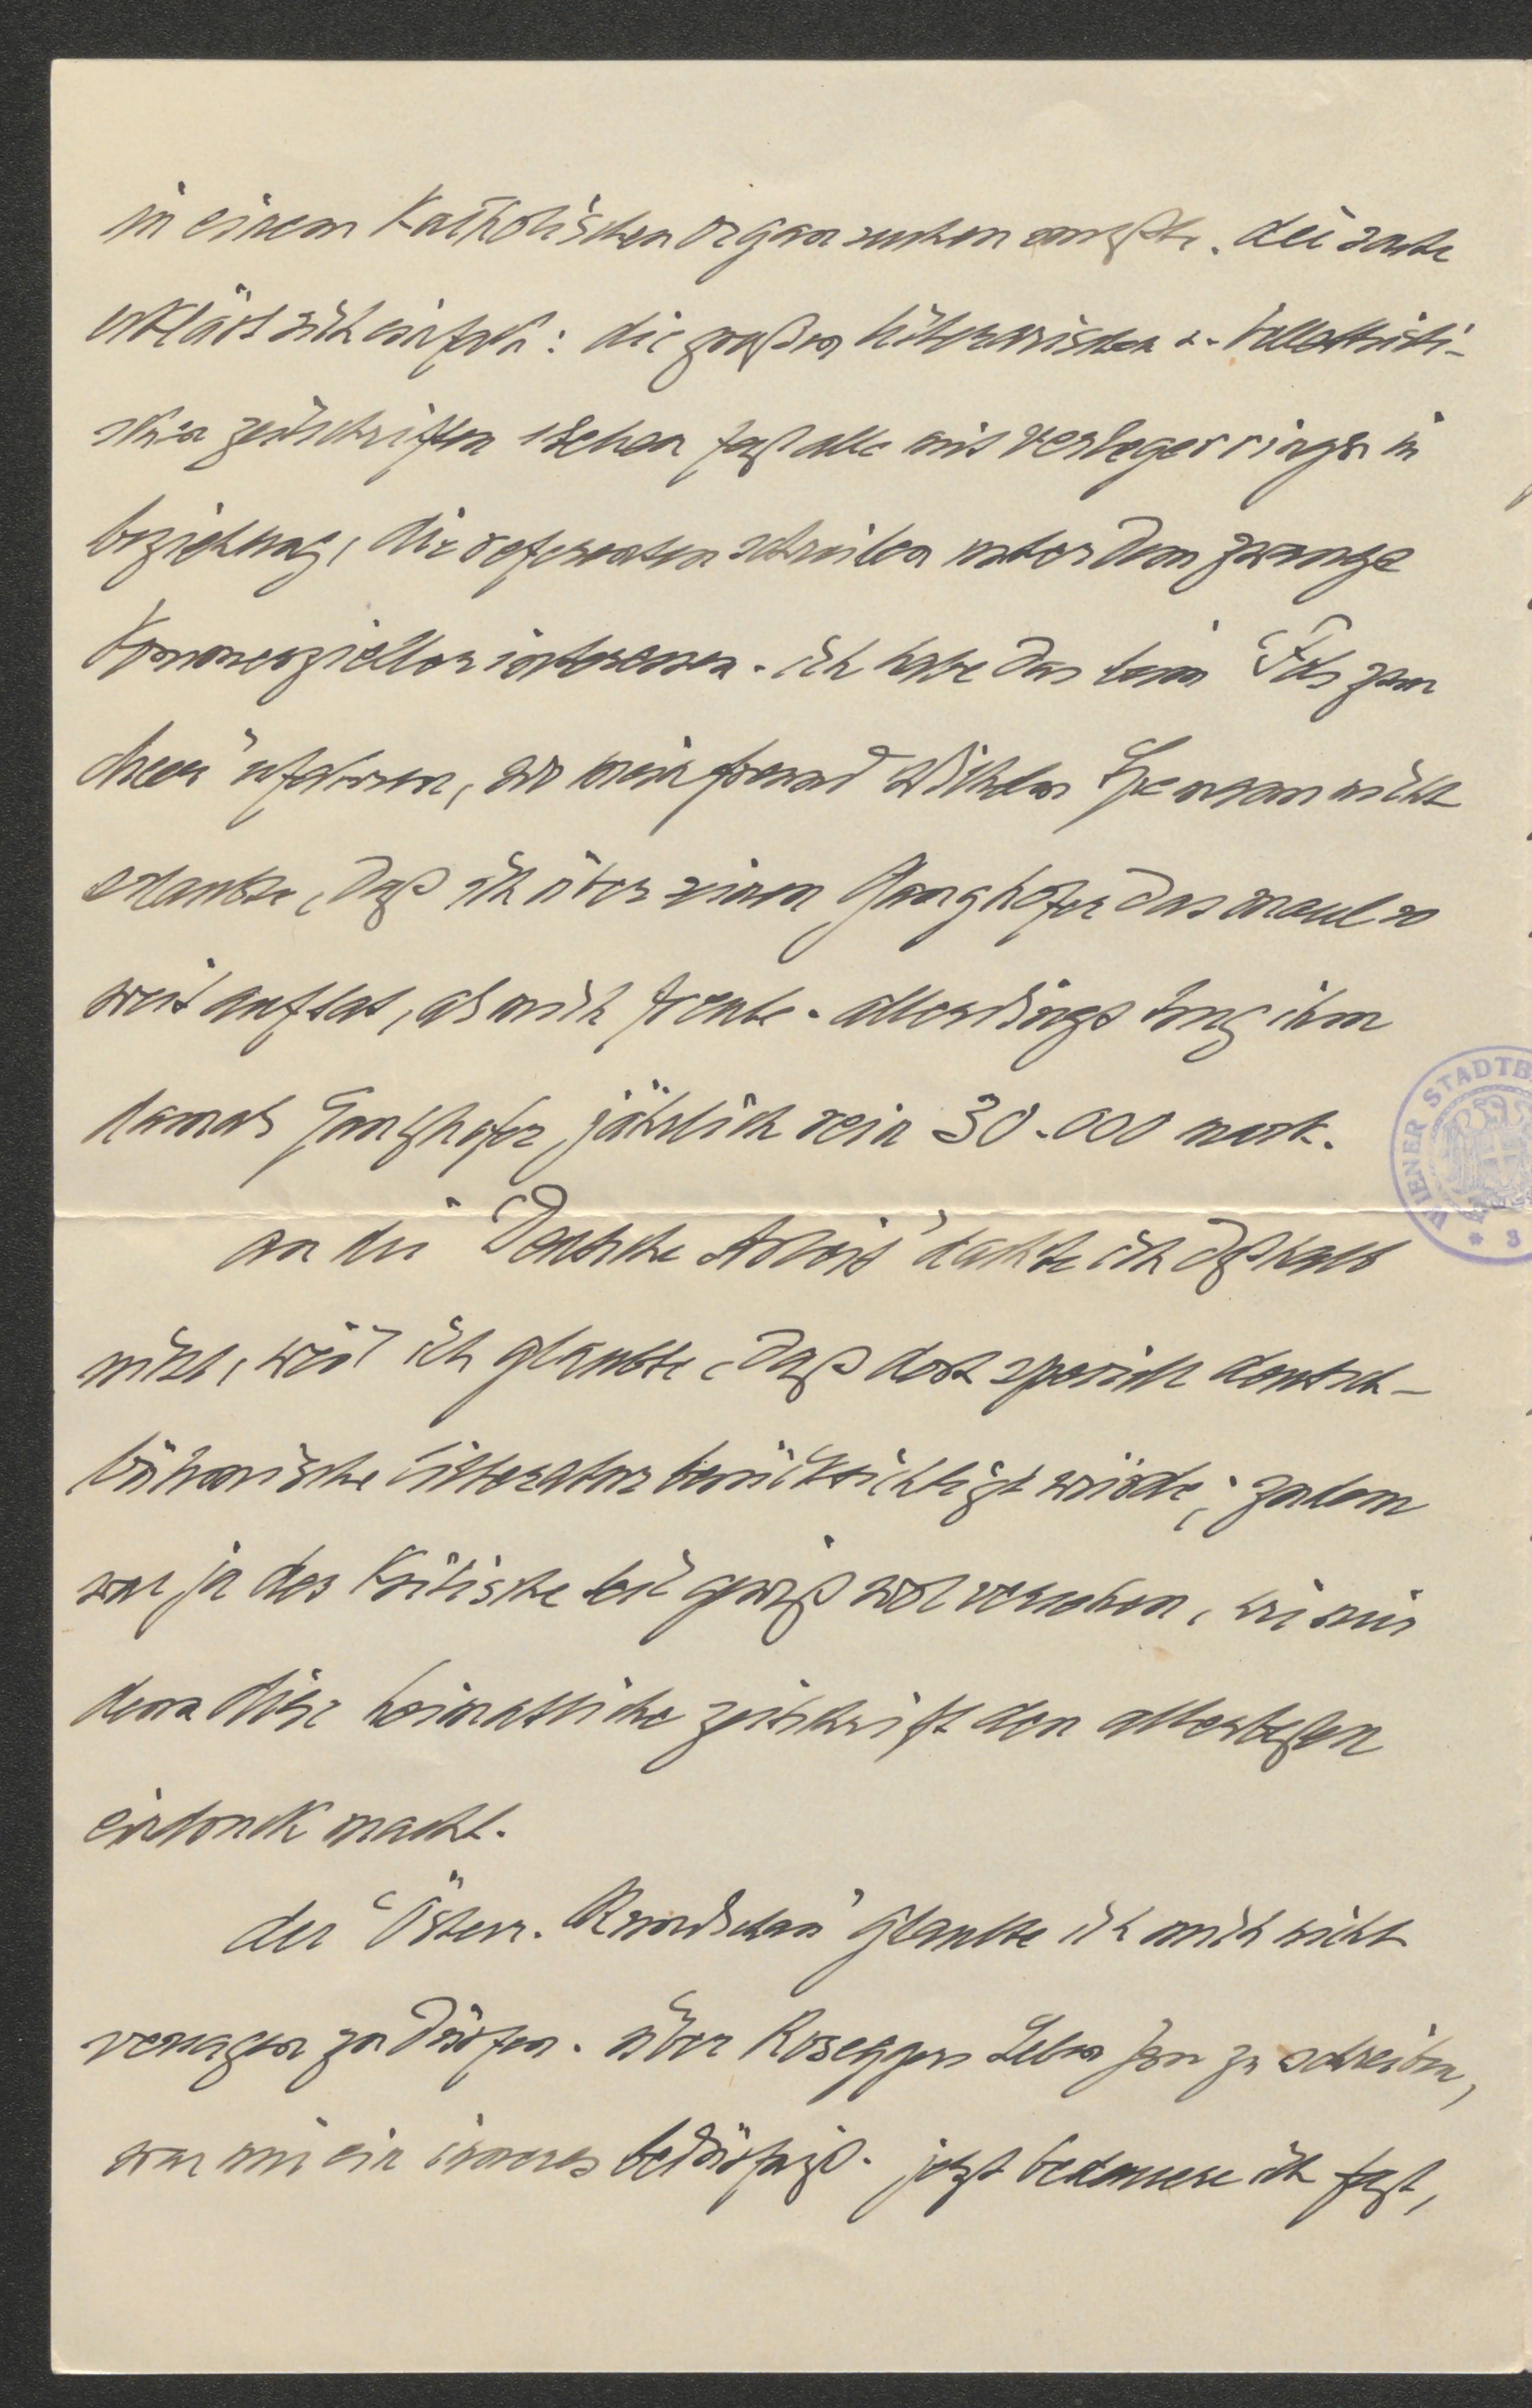 in einem katholischen organ suchen mußte. die sache
erklärt sich einfach: die großen literarischen u. belletristi-
schen zeitschriften stehen fast alle mit verlegerringen in
beziehung, die referenten schreiben unter dem zwange
kommerzieller interessen. ich habe das beim "Fels zum
Meer" erfahren, wo mein freund Wilhelm nicht
erlaubte, daß ich über einen Ganghofer das maul so
weit auftat, als mich freute. allerdings trug ihm
damals Ganghofer jährlich rein 30.000 mark.
an die "Deutsche Arbeit" dachte ich deßhalb
nicht, weil ich glaubte, daß dort speziell deutsch-
böhmische litteratur berücksichtigt würde; zudem
war ja der kritische teil gewiß wol versehen, wie mir
denn diese heimatliche zeitschrift den allerbesten
eindruck macht.
der "Österr. Rundschau" glaubte ich mich nicht
versagen zu dürfen. über Roseggers zu schreiben,
war mir ein inneres bedürfniß. jetzt bedauere ich fast,
WIENER STADTB